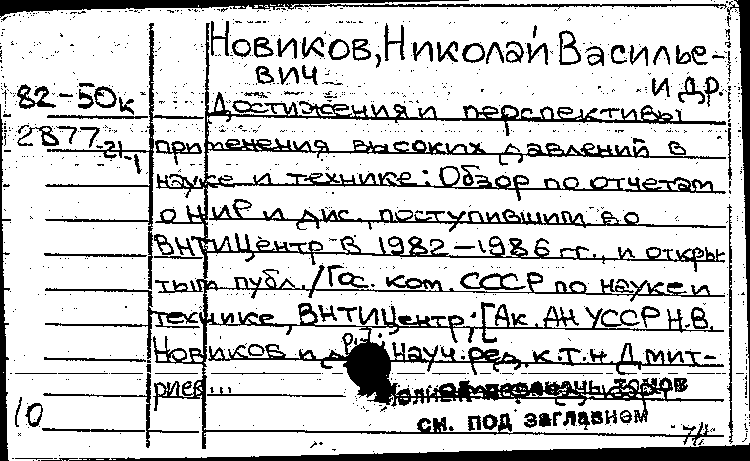 Новиков, Николай Василье-
вич и др.
82-50к
2877-21-1
Достижения и перспективы
применения высоких давлений в
науке и технике: Обзор по отчетам
о НИР и дис., поступившим во
ВНТИЦентр в 1982-1986 гг., и откры-
тым публ./Гос. ком. СССР по науке и
технике, ВНТИЦентр; [Ак. АН УССР Н.В.
Новиков и др.]; Науч. ред. к.т.н. Дмит-
риев...
томов
см. под заглавием
10